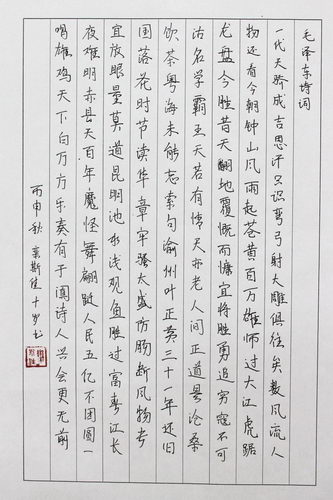 毛泽东诗词
一代天骄成吉思汗只识弯弓射大雕俱往矣数风流人
物还看今朝钟山风雨起苍黄百万雄师过大江虎踞
龙盘今胜昔天翻地覆慨而慷宜将胜勇追穷寇不可
沽名学霸王天若有情天亦老人间正道是沧桑
饮茶粤海未能忘索句渝州叶正黄三十一年还旧
国落花时节读华章牢骚太盛防肠断风物长
宜放眼量莫道昆明池水浅观鱼胜过富春江长
夜难明赤县天百年魔怪舞翩跹人民五亿不团圆一
唱雄鸡天下白万方乐奏有于阗诗人兴会更无前
丙申秋 斯佳十岁书